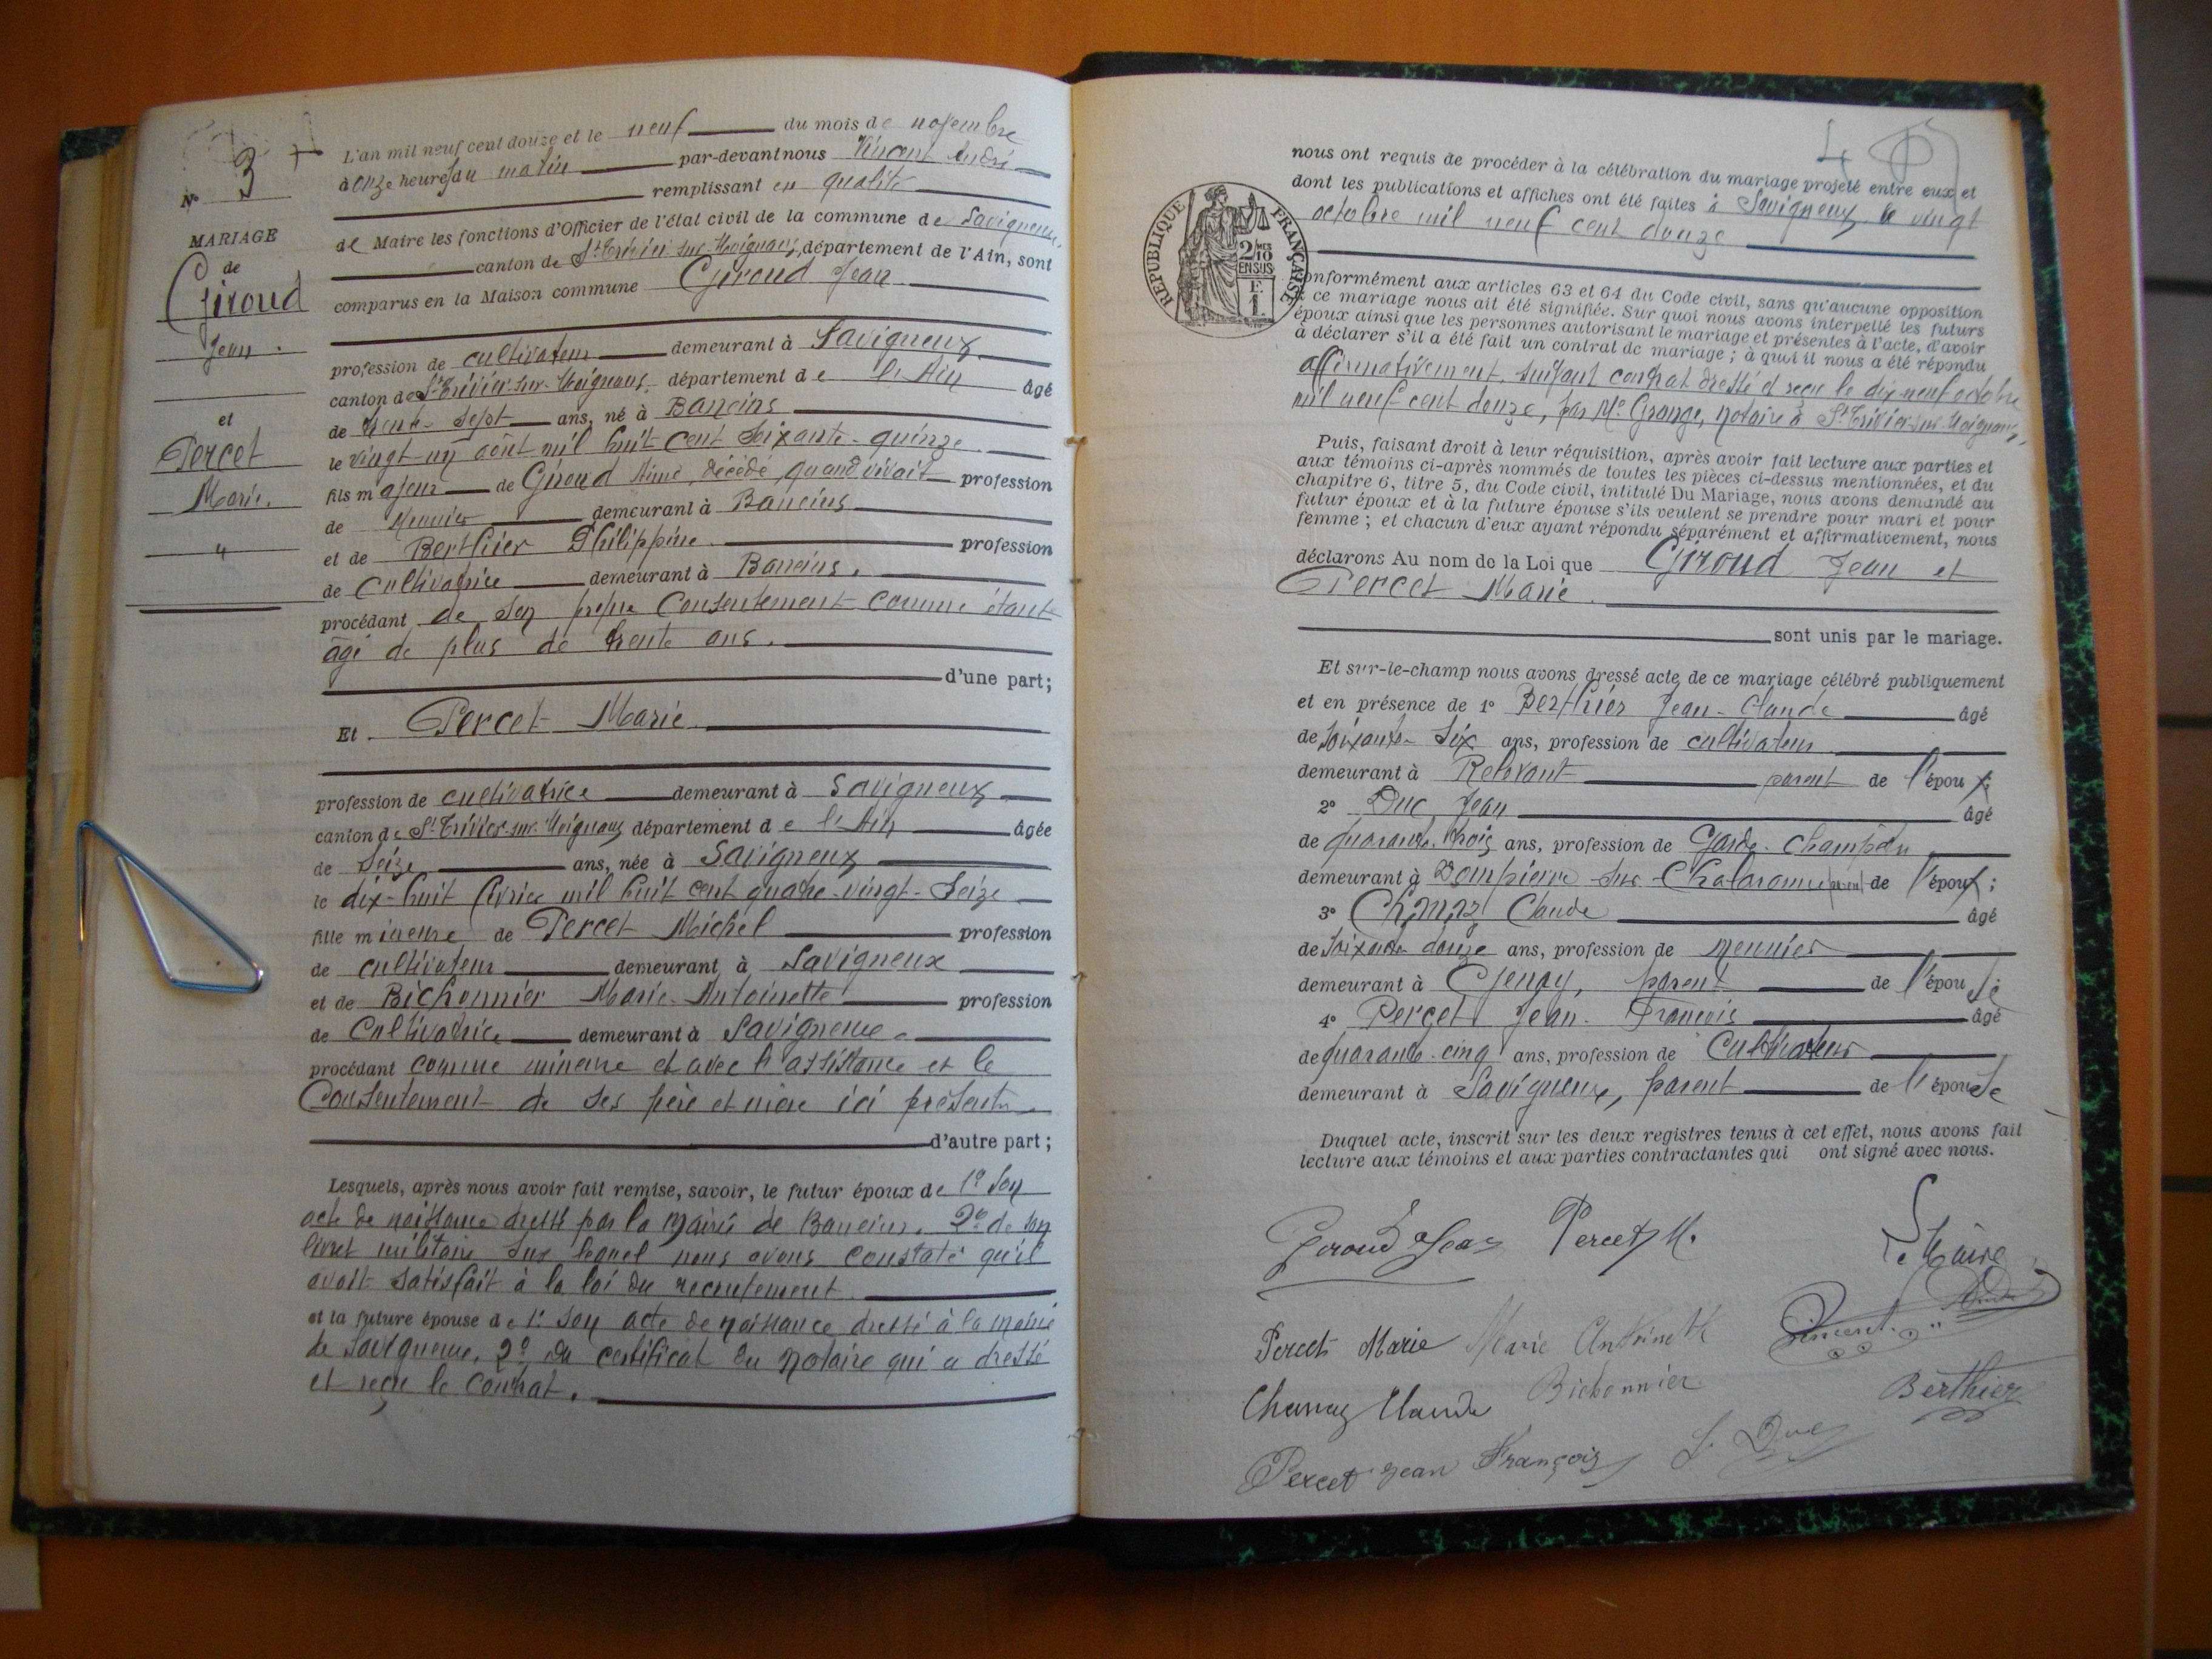 N° 3
MARIAGE
de
Giroud
Jean.
et
Percet
Marie.
L'an mil neuf cent douze et le neuf du mois de novembre
à onze heures du matin par-devant nous Vincent André
remplissant en qualité
de Maire les fonctions d'Officier de l'état civil de la commune de Savigneux,
canton de St Trivier-sur-Moignans, département de l'Ain, sont
comparus en la Maison commune Giroud Jean
profession de cultivateur demeurant à Savigneux
canton de St Trivier-sur-Moignans département de l'Ain âgé
de trente-sept ans, né à Baneins
le vingt-un août mil huit cent soixante-quinze
fils majeur de Giroud Aimé, décédé, quand vivait profession
de Meunier demeurant à Baneins
et de Berthier Philippine profession
de Cultivatrice demeurant à Baneins.
procédant de son propre Consentement comme étant
âgé de plus de trente ans.
d'une part;
Et Percet Marie
profession de cultivatrice demeurant à Savigneux
canton de St Trivier-sur-Moignans département de l'Ain âgée
de seize ans, née à Savigneux
le dix-huit février mil huit cent quatre-vingt-seize
fille mineure de Percet Michel profession
de cultivateur demeurant à Savigneux
et de Bichonnier Marie-Antoinette profession
de Cultivatrice demeurant à Savigneux
procédant comme mineure et avec l'assistance et le
Consentement de ses père et mère ici présents
d'autre part;
Lesquels, après nous avoir fait remise, savoir, le futur époux de 1° son
acte de naissance dressé par la mairie de Baneins. 2° de son
livret militaire sur lequel nous avons constaté qu'il
avait satisfait à la loi du recrutement.
et la future épouse de 1° son acte de naissance dressé à la mairie
de Savigneux, 2° du certificat du notaire qui a dressé
et reçu le contrat.
nous ont requis de procéder à la célébration du mariage projeté entre eux et
dont les publications et affiches ont été faites à Savigneux le vingt
octobre mil neuf cent douze
RÉPUBLIQUE FRANÇAISE
2/10 EN SUS
F. 1
conformément aux articles 63 et 64 du Code civil, sans qu'aucune opposition
à ce mariage nous ait été signifiée. Sur quoi nous avons interpellé les futurs
époux ainsi que les personnes autorisant le mariage et présentes à l'acte, d'avoir
à déclarer s'il a été fait un contrat de mariage; à quoi il nous a été répondu
affirmativement, suivant contrat dressé et reçu le dix-neuf octobre
mil neuf cent douze, par Me Grange, notaire à St Trivier-sur-Moignans,
Puis, faisant droit à leur réquisition, après avoir fait lecture aux parties et
aux témoins ci-après nommés de toutes les pièces ci-dessus mentionnées, et du
chapitre 6, titre 5, du Code civil, intitulé Du Mariage, nous avons demandé au
futur époux et à la future épouse s'ils veulent se prendre pour mari et pour
femme; et chacun d'eux ayant répondu séparément et affirmativement, nous
déclarons Au nom de la Loi que Giroud Jean et
Percet Marie
sont unis par le mariage.
Et sur-le-champ nous avons dressé acte de ce mariage célébré publiquement
et en présence de 1° Berthier Jean-Claude âgé
de soixante-six ans, profession de cultivateur
demeurant à Relevant parent de l'époux;
2° Duc Jean âgé
de quarante-trois ans, profession de Garde-champêtre
demeurant à Dompierre-sur-Chalaronne parent de l'époux;
3° Charnay Claude âgé
de soixante douze ans, profession de meunier
demeurant à parent de l'épouse
4° Percet Jean-François âgé
de quarante-cinq ans, profession de Cultivateur
demeurant à Savigneux, parent de l'épouse
Duquel acte, inscrit sur les deux registres tenus à cet effet, nous avons fait
lecture aux témoins et aux parties contractantes qui ont signé avec nous.
Giroud Jean Percet M. Le Maire
Percet Marie Marie Antoinette Vincent André
Charnay Claude Bichonnier Berthier
Percet Jean François J. Duc